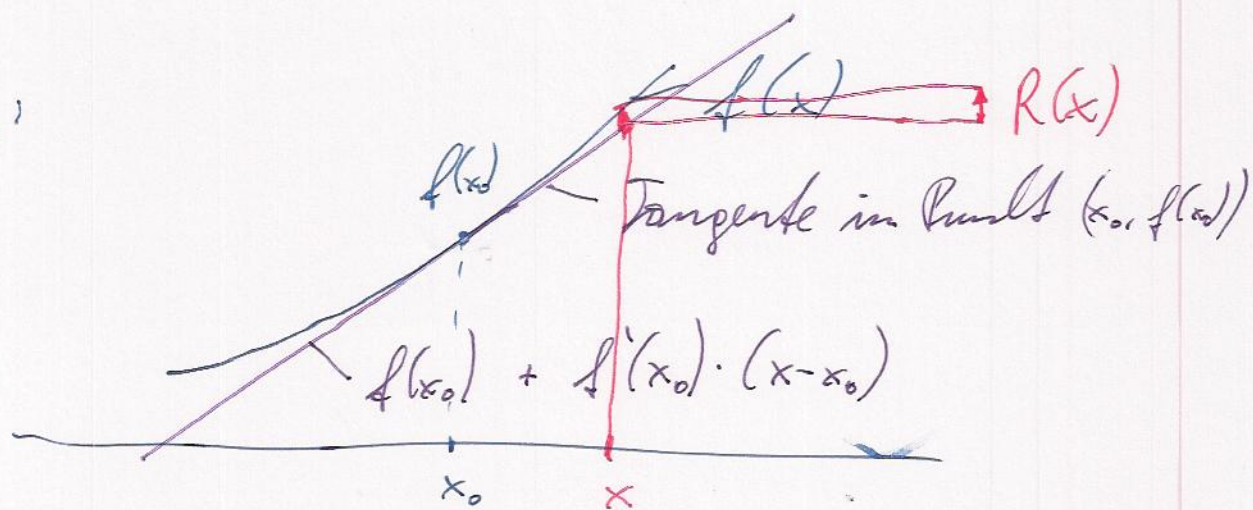 f(x) R(x)
f(x₀)
Tangente im Punkt (x₀, f(x₀))
f(x₀) + f'(x₀)·(x-x₀)
x₀ x